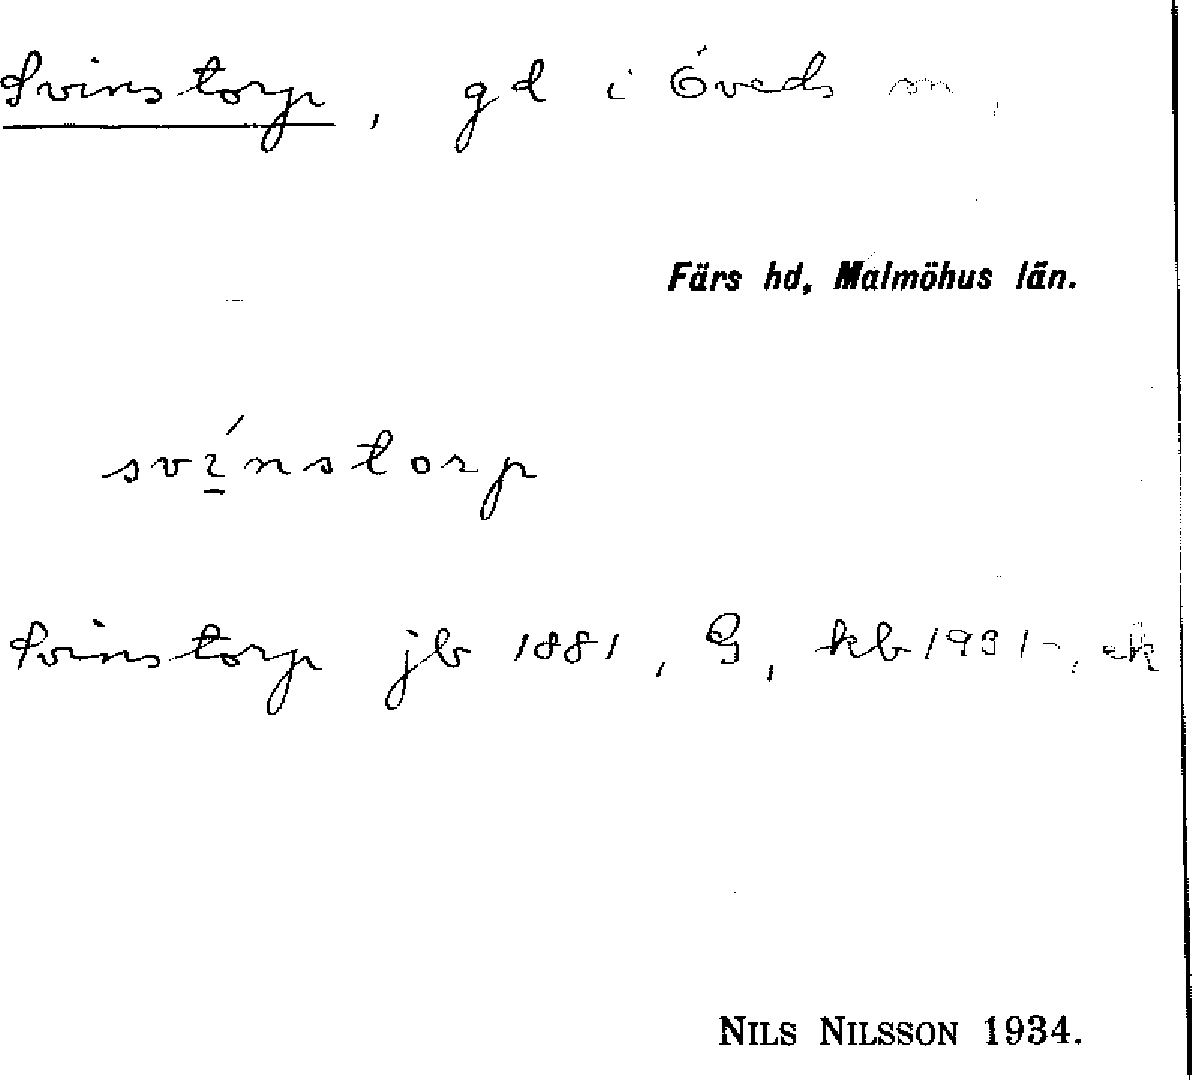 Svinstorp, gd i Öveds sn,
Färs hd, Malmöhus län.
svínstorp
Svinstorp jb 1881, G, kb 1931, ek
NILS NILSSON 1934.